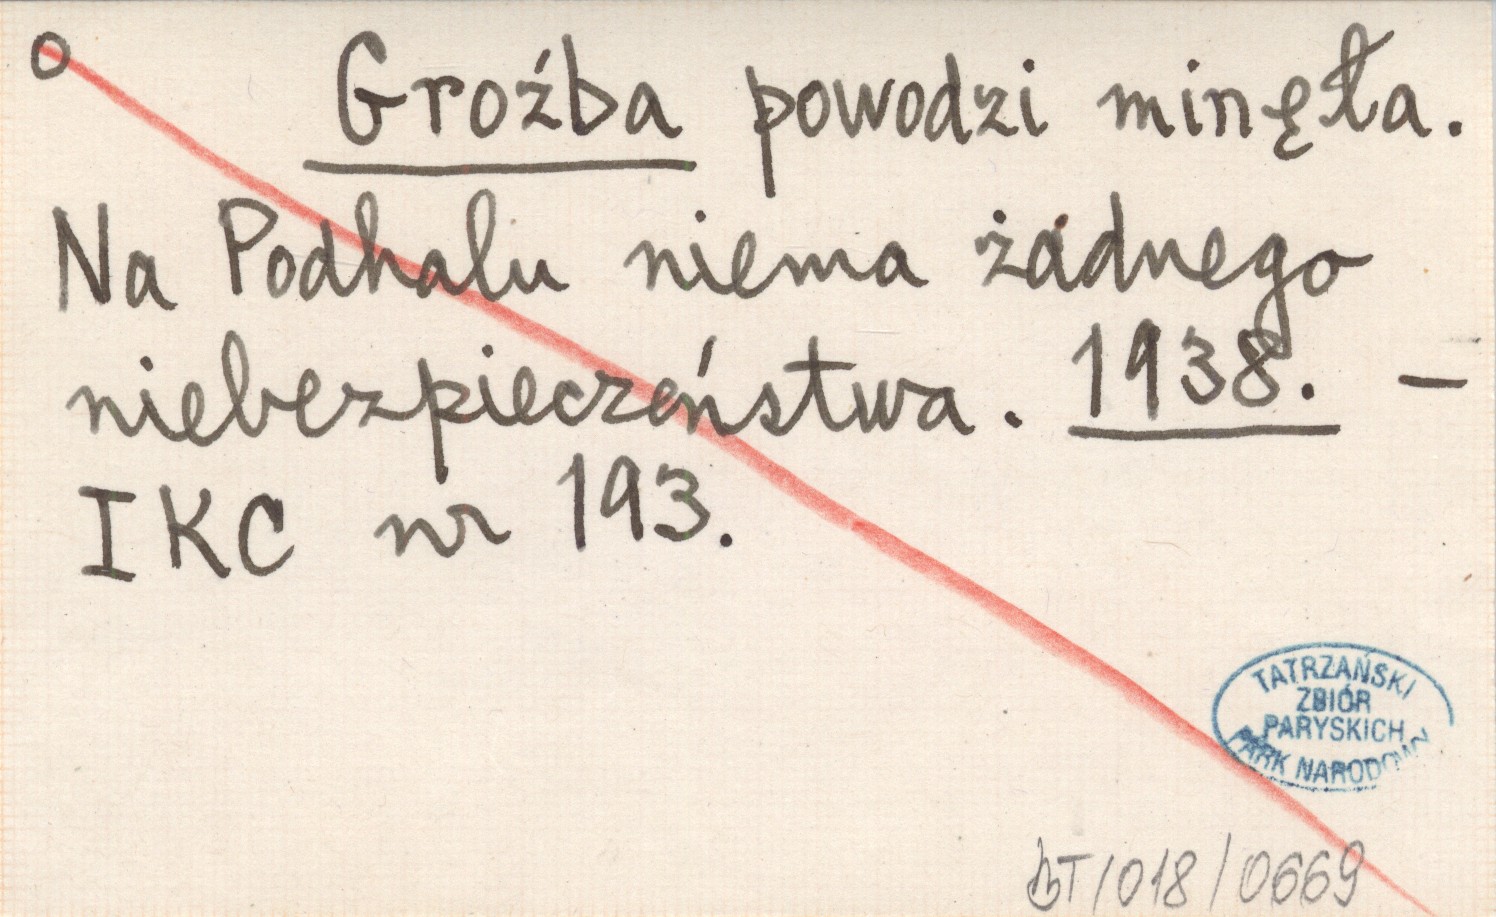 o Groźba powodzi minęła.
Na Podhalu niema żadnego
niebezpieczeństwa. 1938. —
IKC nr 193.
TATRZAŃSKI
ZBIÓR
PARYSKICH
PARK NARODOWY
BT/018/0669